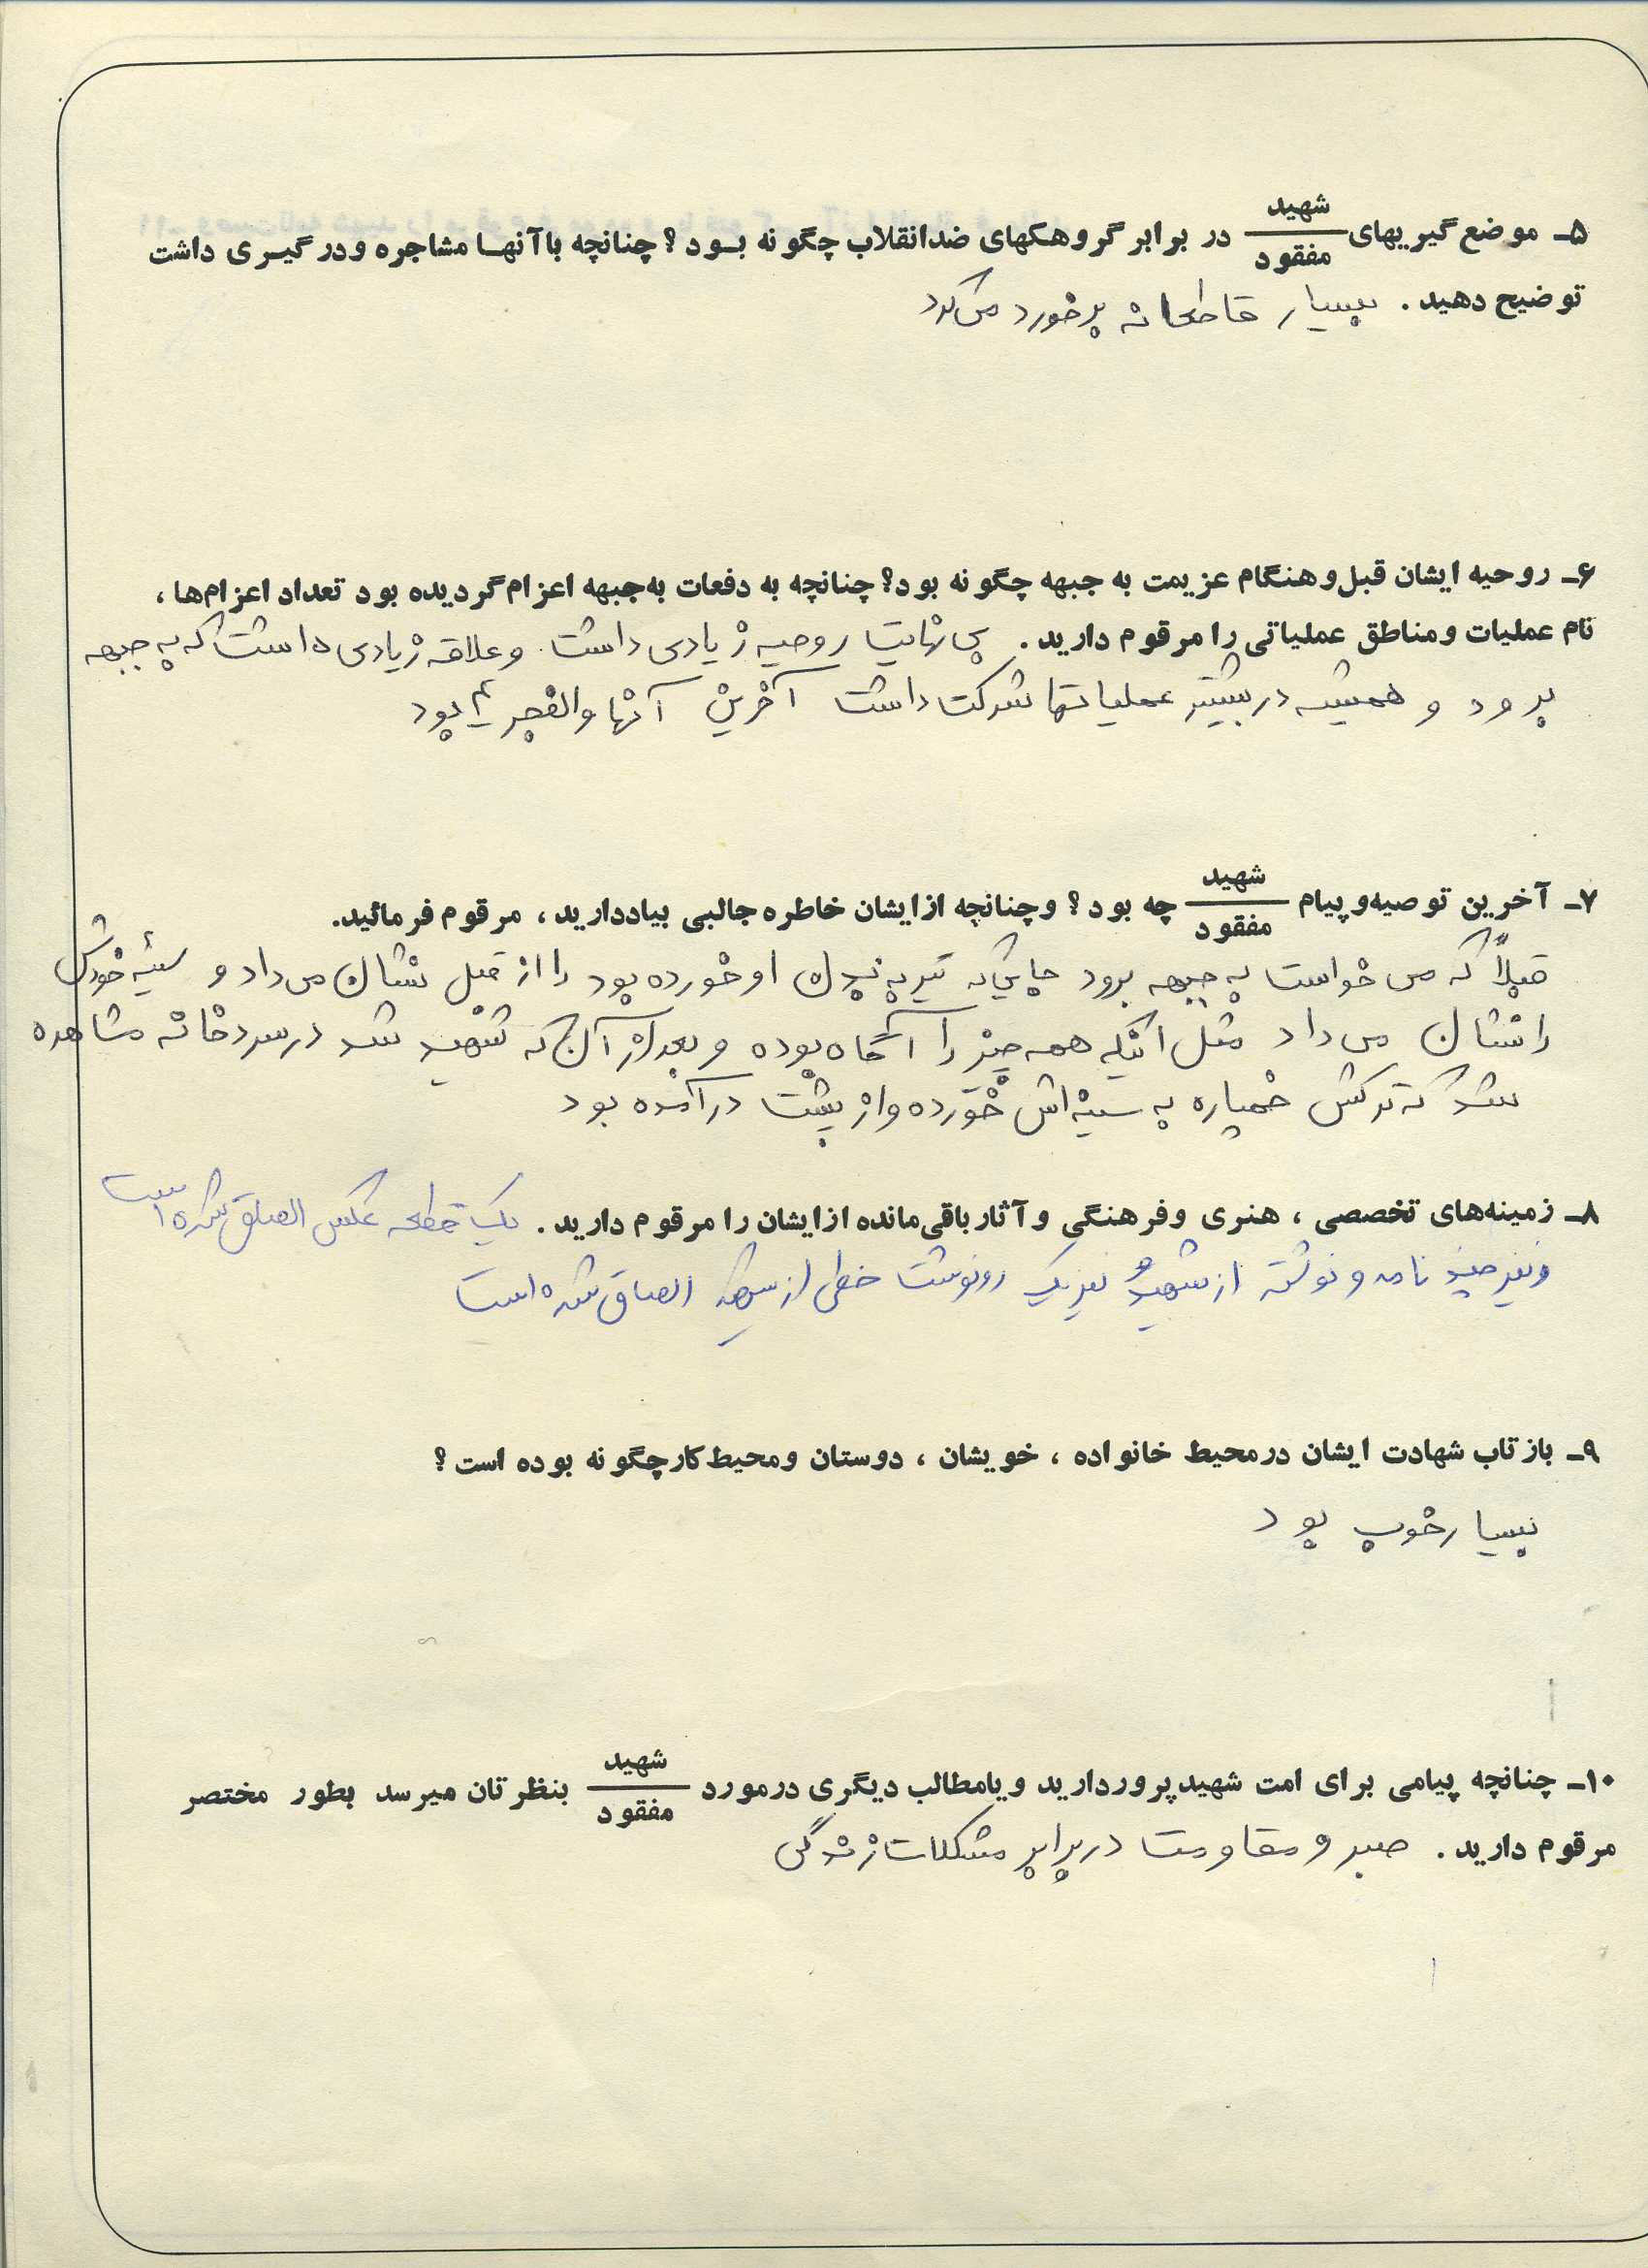 ۵ـ موضع گیریهای شهید / مفقود در برابر گروهکهای ضدانقلاب چگونه بود؟ چنانچه باآنها مشاجره ودرگیری داشت
توضیح دهید. بسیار قاطعانه برخورد می‌کرد
۶ـ روحیه ایشان قبل‌وهنگام عزیمت به جبهه چگونه بود؟ چنانچه به دفعات به‌جبهه اعزام‌گردیده بود تعداد اعزام‌ها،
نام عملیات ومناطق عملیاتی را مرقوم دارید. بی‌نهایت روحیه زیادی داشت و علاقه زیادی داشت که به جبهه
برود و همیشه در بیشتر عملیاتها شرکت داشت آخرین آنها والفجر ۴ بود
۷ـ آخرین توصیه‌وپیام شهید / مفقود چه بود؟ وچنانچه ازایشان خاطره جالبی بیاددارید، مرقوم فرمائید.
قبلاً که می‌خواست به جبهه برود جایی‌که تیر به بدن او خورده بود را از قبل نشان می‌داد و سینه خودش
را نشان می‌داد مثل اینکه همه چیز را آگاه بوده و بعد از آن که شهید شد در سردخانه مشاهده
شد که ترکش خمپاره به سینه‌اش خورده و از پشت درآمده بود
۸ـ زمینه‌های تخصصی، هنری وفرهنگی وآثارباقی‌مانده ازایشان را مرقوم دارید. یک قطعه عکس الصاق شده است
ونیز چند نامه و نوشته از شهید و نیز یک رونوشت خطی از شهید الصاق شده است
۹ـ بازتاب شهادت ایشان درمحیط خانواده، خویشان، دوستان ومحیط‌کارچگونه بوده است؟
بسیار خوب بود
۱۰ـ چنانچه پیامی برای امت شهیدپروردارید ویامطالب دیگری درمورد شهید / مفقود بنظرتان میرسد بطور مختصر
مرقوم دارید. صبر و مقاومت در برابر مشکلات زندگی